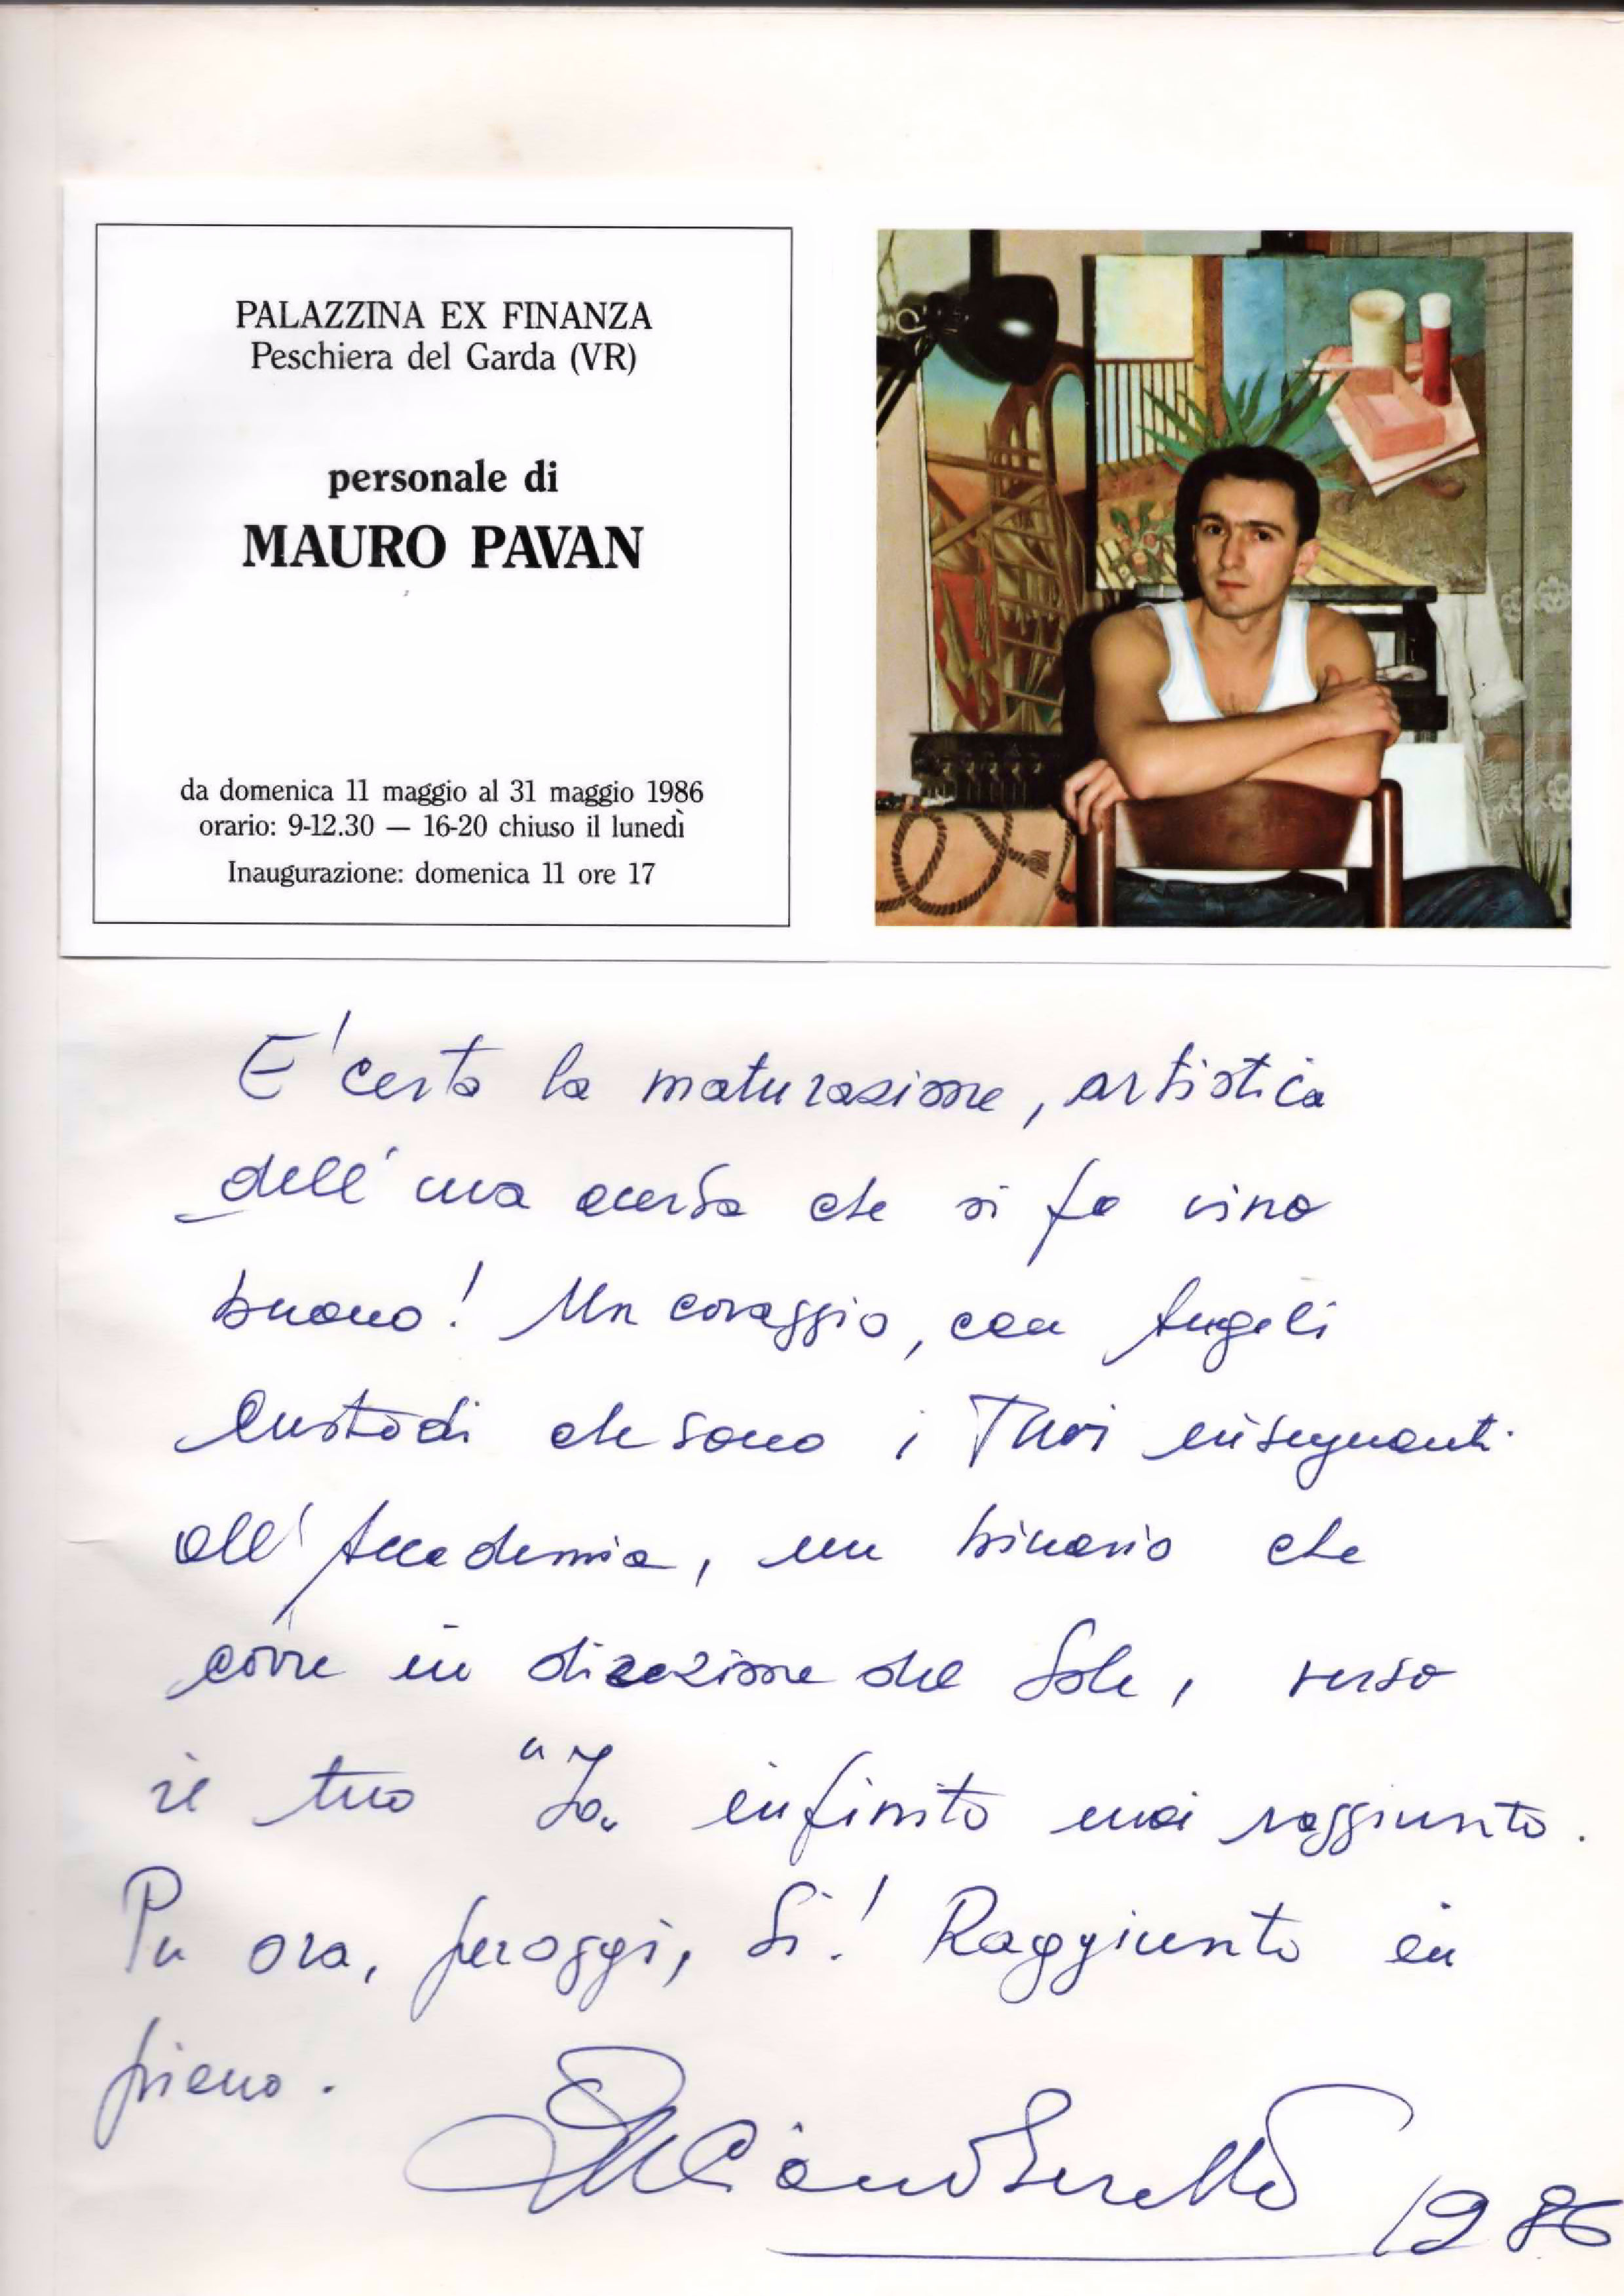 PALAZZINA EX FINANZA
Peschiera del Garda (VR)
personale di
MAURO PAVAN
da domenica 11 maggio al 31 maggio 1986
orario: 9-12.30 — 16-20 chiuso il lunedì
Inaugurazione: domenica 11 ore 17
E' certa la maturazione, artistica
dell' uva acerba che si fa vino
buono! Un coraggio, con Angeli
Custodi che sono i Tuoi insegnanti
all' Accademia, un binario che
corre in direzione del Sole, verso
il tuo "Io" infinito mai raggiunto.
Per ora, per oggi, Si! Raggiunto in
pieno.
1986